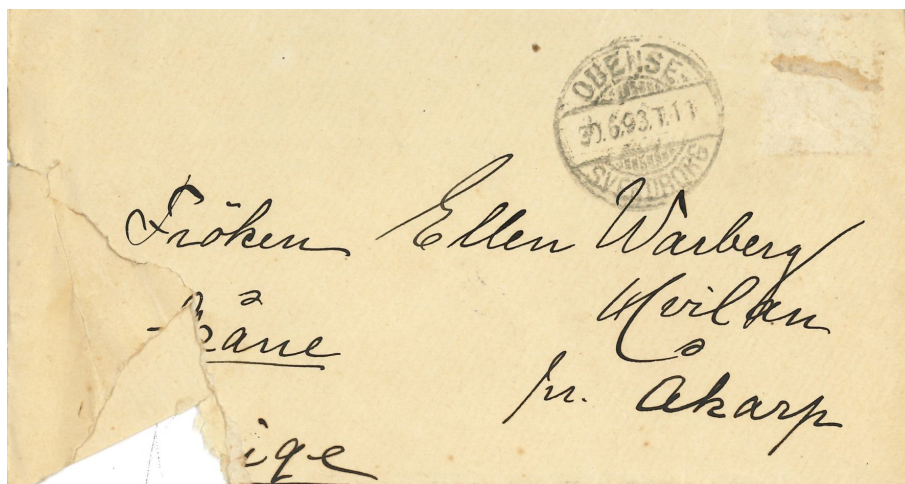 ODENSE-
30.6.93.T.11
SVENDBORG
Fröken Ellen Warberg
Hvilan
pr. Åkarp
Skåne
ige